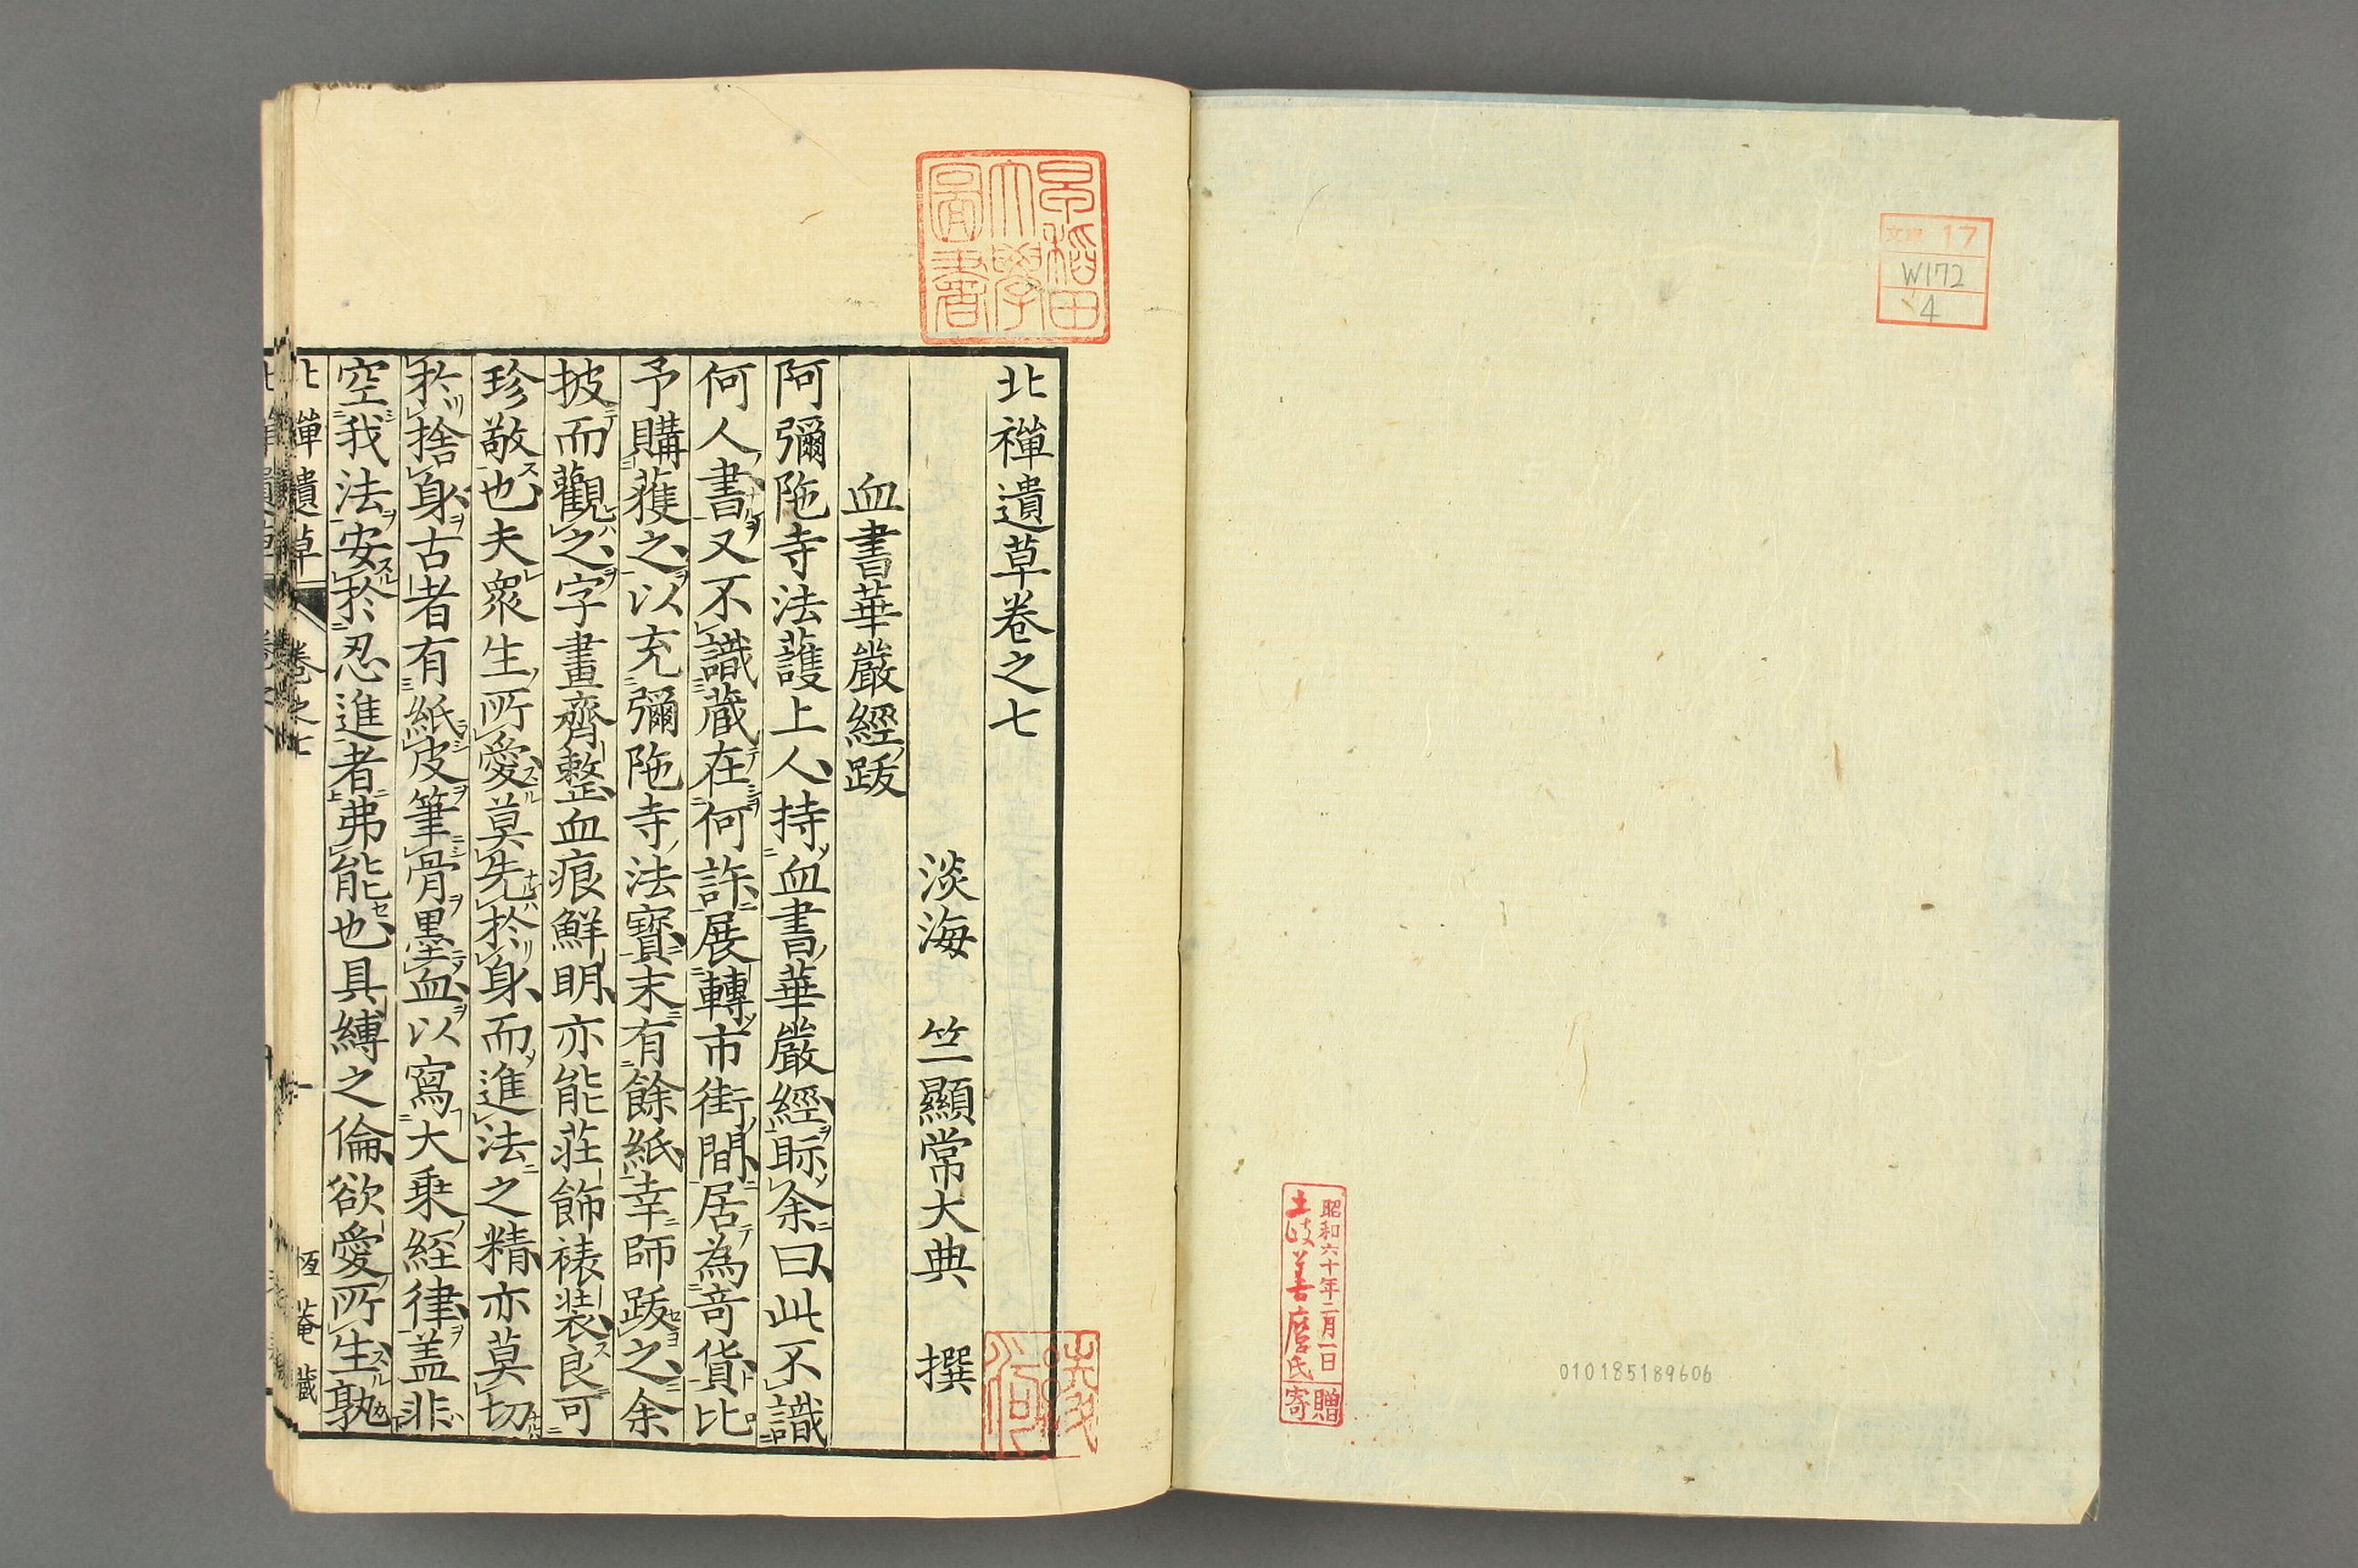 文庫 17
W172
4
昭和六十年二月一日
土岐善麿氏
寄贈
010185189606
早稲田
大學
圖書
北禅遺草卷之七
淡海 竺顯常大典 撰
血書華嚴經跋
阿彌陁寺法護上人持血書華嚴經眎余曰此不識
何人書又不識蔵在何許展轉市街間居為竒貨比
予購獲之以充彌陁寺法寶末有餘紙幸師跋之余
披而觀之字畫齊整血痕鮮明亦能莊飾裱装良可
珍敬也夫衆生所愛莫先於身而進法之精亦莫切
於捨身古者有紙皮筆骨墨血以寫大乗經律盖非
空我法安於忍進者弗能也具縛之倫欲愛所生孰
北禅遺草 卷之七 一 恆菴藏